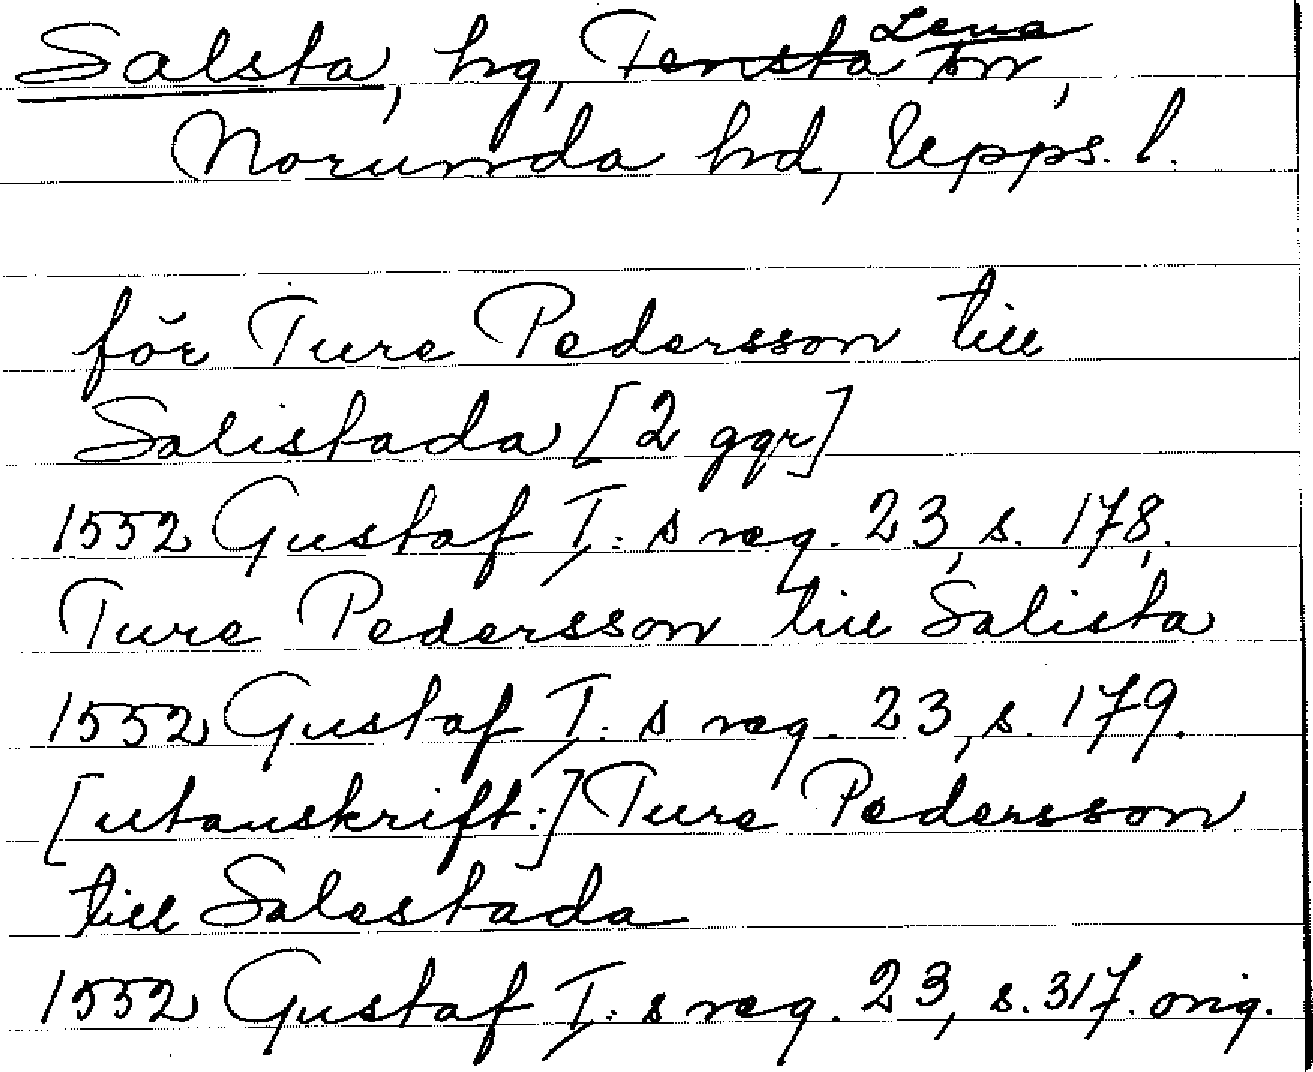 Salsta, hg, Tensta Lena sn,
Norunda hd, Upps. l.
för Ture Pedersson till
Salistada [2 ggr]
1552 Gustaf I:s reg. 23, s. 178.
Ture Pedersson till Salista
1552 Gustaf I:s reg. 23, s. 179.
[utanskrift:] Ture Pedersson
till Salestada
1552 Gustaf I:s reg. 23, s. 317. orig.